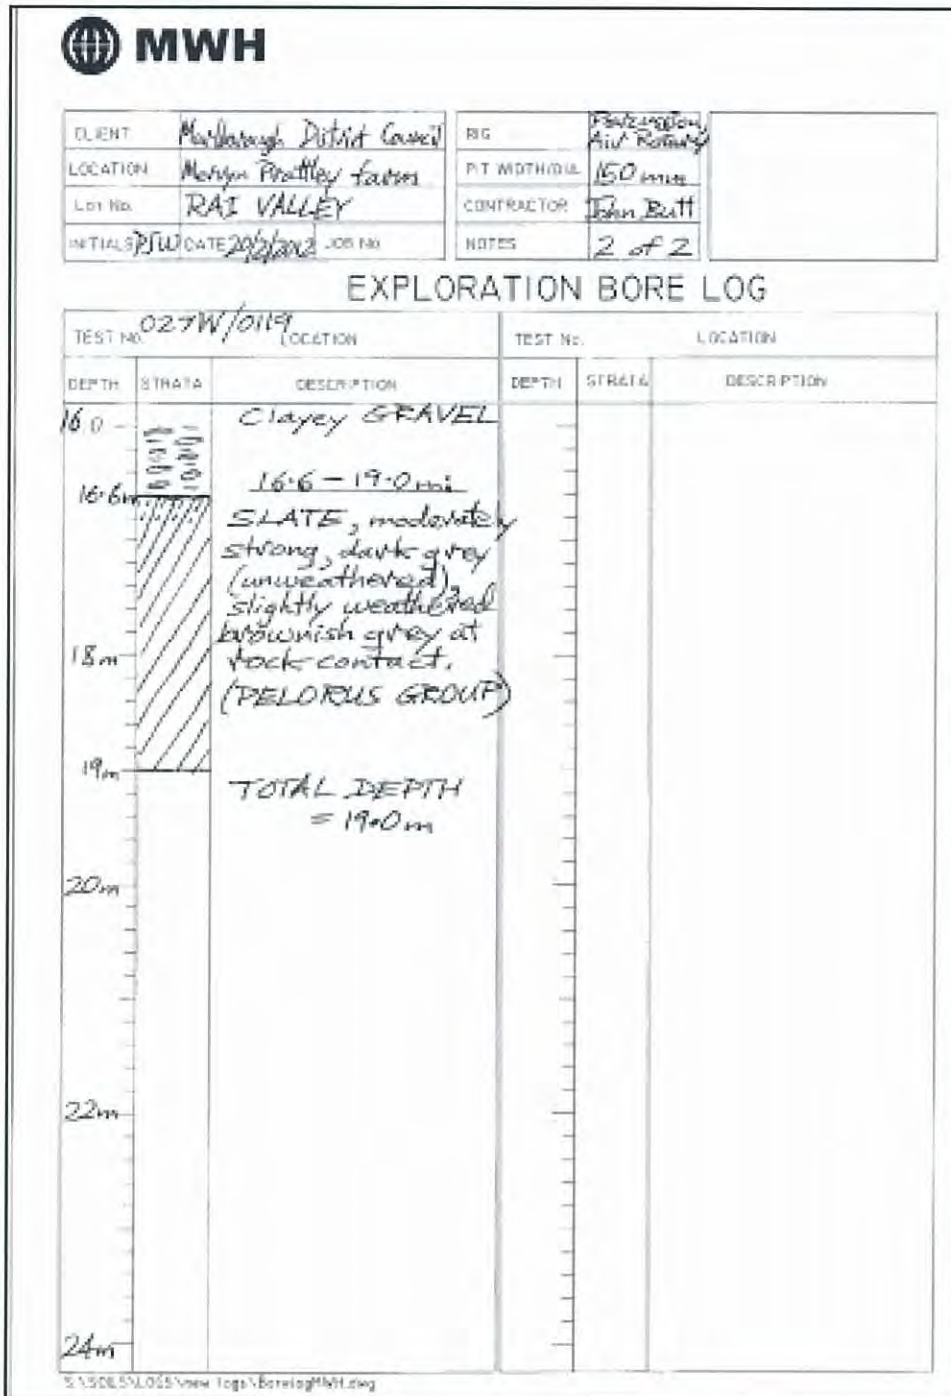 MWH
CLIENT Marlborough District Council
LOCATION Mervyn Prattley farm
Lot No. RAI VALLEY
INITIALS PSW DATE 20/2/2012 JOB No
RIG Percussion, Air Rotary
PIT WIDTH/DIA. 150 mm
CONTRACTOR John Butt
NOTES 2 of 2
EXPLORATION BORE LOG
TEST No. 027W/0119 LOCATION
TEST No. LOCATION
DEPTH STRATA DESCRIPTION
DEPTH STRATA DESCRIPTION
16.0
Clayey GRAVEL
16.6m
16.6 - 19.0 m:
SLATE, moderately
strong, dark grey
(unweathered),
slightly weathered
brownish grey at
18m
rock contact.
(PELORUS GROUP)
19m
TOTAL DEPTH
= 19.0 m
20m
22m
24m
S:\SOILS\LOGS\new logs\BorelogMWH.dwg